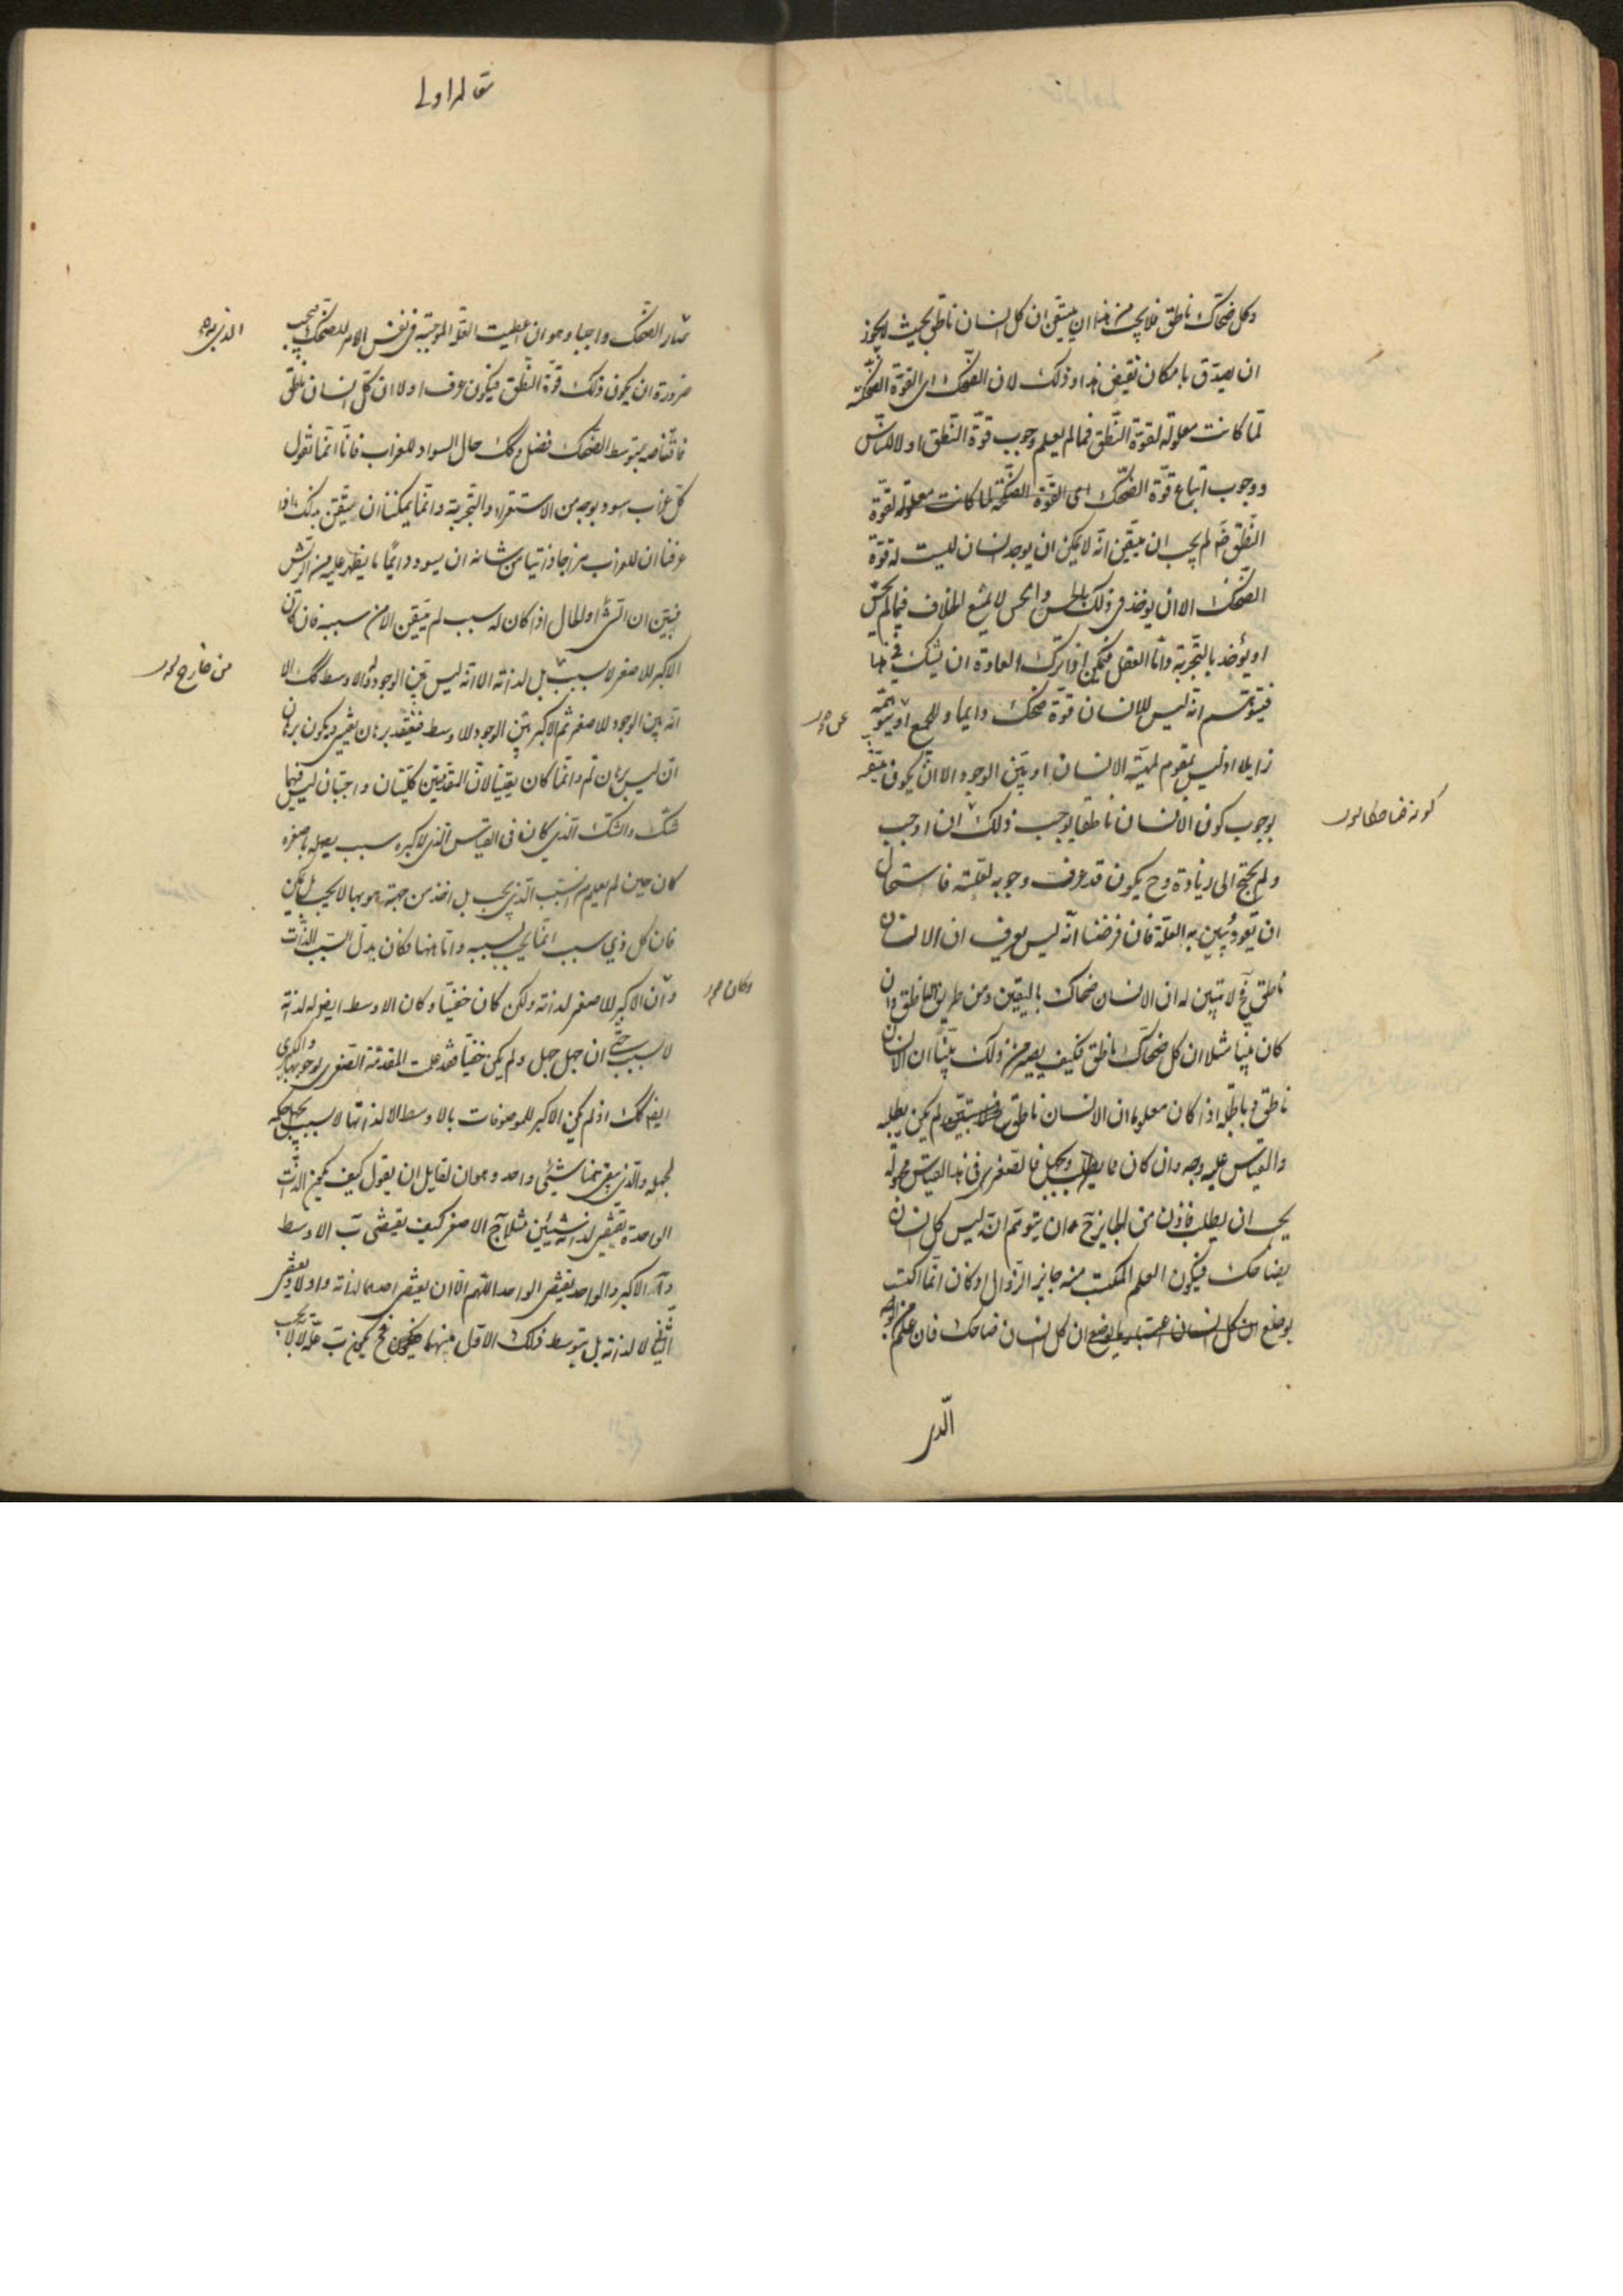 وكل ضحاك ناطق فلا يجب من هذا ان يتيقن ان كل انسان ناطق بحيث لا يجوز
ان يصدق بامكان نقيض هذا وذلك لان الضحك اى القوة الضحكية
لما كانت معلولة لقوة النطق فما لم يعلم وجوب قوة النطق اولا للناس
ووجوب اتباع قوة الضحك اى القوة الضحكية لما كانت معلولة لقوة
النطق لم يجب ان يتيقن انه لا يمكن ان يوجد انسان ليست له قوة
الضحك الا ان يوخذ فى ذلك بالحس والحس لا يمنع الخلاف فيما لم يحس
او يؤخذ بالتجربة واما العقل فيمكن اذا ترك العادة ان يشك فى هذا
فيتوهم انه ليس للانسان قوة ضحك دايما وللجميع او يتوهمه
زايلا اذ ليس بمقوم لمهية الانسان او بين الوجود الا ان يكون متيقنه
بوجوب كون الانسان ناطقا يوجب ذلك ان اوجب
كونه ضاحكا
ولم يحتج الى زيادة وح يكون قد عرف وجوبه لعلته فاستحال
ان يعود يبين به العلة فان فرضنا انه ليس يعرف ان الانسان
ناطق فح لا يتبين له ان الانسان ضحاك باليقين ومن طريق الناطق وان
كان بينا مثلا ان كل ضحاك ناطق فكيف يصير من ذلك بينا ان الانسان
ناطق وبالجملة اذا كان معلوما ان الانسان ناطق لم يكن يطلبه
والقياس عليه وجه وان كان ما يطلب ويجهل فالصغرى فى هذا القياس مجهولة
يجب ان يطلب فاذن من الجايز ح ان يتوهم انه ليس كل انسان
بضاحك فيكون العلم المكتسب منه جايز الزوال او كان انما اكتسب
بوضع ان كل انسان ضاحك فان علم من الوجه
الذى
مقاله اولى
صار الضحك واجبا وهو ان اعطيت العلة الموجبة فى نفس الامر للضحك فيجب
الذى به
ضرورة ان يكون ذلك قوة النطق فيكون عرف اولا ان كل انسان ناطق
فاقتناصه بتوسط الضحك فضل وكك حال السواد للغراب فانا انما نقول
كل غراب اسود بوجه من الاستقراء والتجربة وانما يمكننا ان نتيقن بذلك اذا
عرفنا ان للغراب مزاجا ذاتيا من شانه ان يسود دايما ما يظهر عليه من الريش
فبين ان الشئ او الحال اذا كان له سبب لم يتيقن الا من سببه فان كان
الاكبر للاصغر لا بسبب بل لذاته الا انه ليس بين الوجود له والاوسط كك الا
من خارج
انه بين الوجود للاصغر ثم الاكبر بين الوجود للاوسط فينعقد برهان يقينى ويكون برهان
ان ليس برهان لم وانما كان يقينا لان المقدمتين كليتان واجبتان ليس فيهما
شك والشك الذى كان فى القياس الذى لاكبره سبب يصله باصغره
كان حين لم يعلم السبب الذى يجب بل اخذ من جهة هو بها لا يجب بل يمكن
فان كل ذى سبب انما يجب بسببه واما ههنا فكان بدل السبب الذات
وان الاكبر للاصغر لذاته ولكن كان خفيا وكان الاوسط ايضا له لذاته
وكان
لا بسبب حتى ان جهل جهل ولم يكن خفيا فقد علمت المقدمة الصغرى بوجوبها والكبرى
ايضا كك اذ لم يكن الاكبر للموصوفات بالاوسط الا لذاتها لا بسبب يجهل حكمه
لجهله والذى بقى ههنا شىء واحد وهو ان لقايل ان يقول كيف يمكن الذات
الواحدة تقتضى لذاته شيئين مثلا ج الاصغر كيف يقتضى ب الاوسط
وا الاكبر والواحد يقتضى الواحد اللهم الا ان يقتضى احدهما لذاته واولا ويقتضى
الثانى لا لذاته بل بتوسط ذلك الاول منهما فح يكون ب علة لا